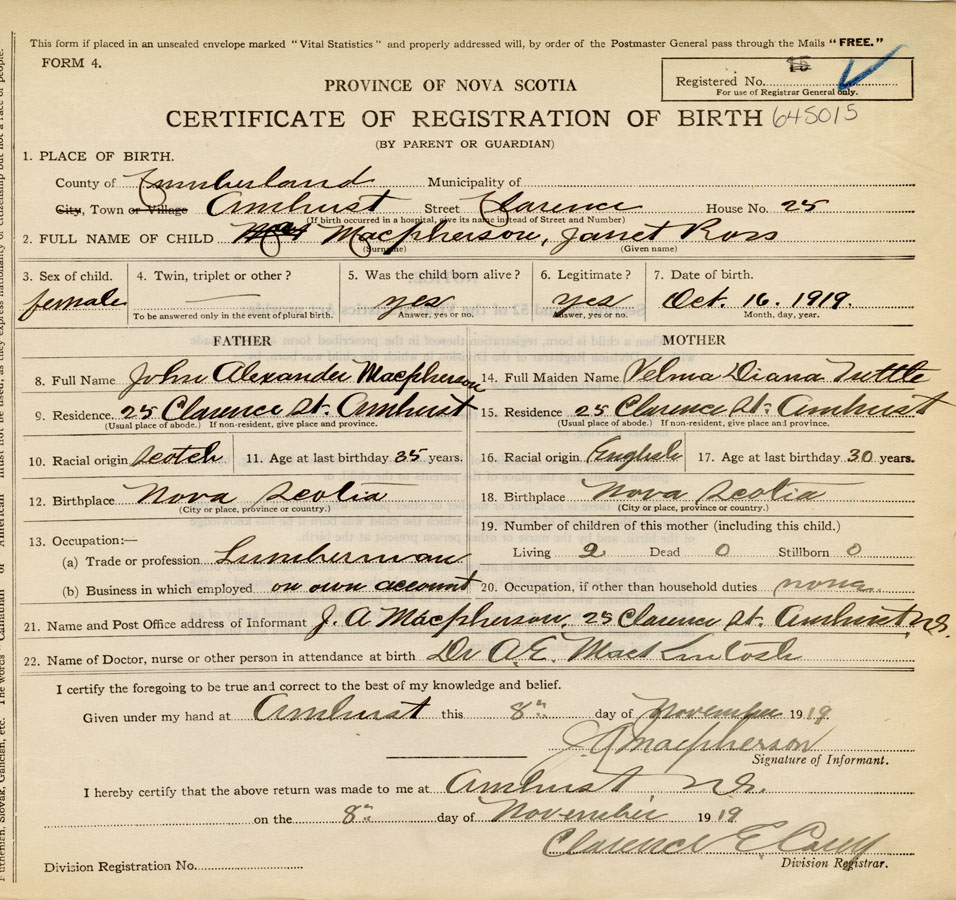 This form if placed in an unsealed envelope marked "Vital Statistics" and properly addressed will, by order of the Postmaster General pass through the Mails "FREE."
FORM 4.
PROVINCE OF NOVA SCOTIA
Registered No. 15
For use of Registrar General only.
CERTIFICATE OF REGISTRATION OF BIRTH 645015
(BY PARENT OR GUARDIAN)
1. PLACE OF BIRTH.
County of Cumberland Municipality of
City, Town or Village Amhurst Street Clarence House No. 25
(If birth occurred in a hospital, give its name instead of Street and Number)
2. FULL NAME OF CHILD Macpherson, Janet Ross
(Surname) (Given name)
3. Sex of child. 4. Twin, triplet or other? 5. Was the child born alive? 6. Legitimate? 7. Date of birth.
female — yes yes Oct. 16. 1919.
To be answered only in the event of plural birth. Answer, yes or no. Answer, yes or no. Month, day, year.
FATHER MOTHER
8. Full Name John Alexander Macpherson 14. Full Maiden Name Velma Diana Tuttle
9. Residence. 25 Clarence St. Amhurst 15. Residence 25 Clarence St. Amhurst
(Usual place of abode.) If non-resident, give place and province. (Usual place of abode.) If non-resident, give place and province.
10. Racial origin Scotch 11. Age at last birthday 35 years. 16. Racial origin English 17. Age at last birthday 30 years.
12. Birthplace Nova Scotia 18. Birthplace Nova Scotia
(City or place, province or country.) (City or place, province or country.)
19. Number of children of this mother (including this child.)
13. Occupation:—
(a) Trade or profession Lumberman Living 2 Dead 0 Stillborn 0
(b) Business in which employed on own account 20. Occupation, if other than household duties none.
21. Name and Post Office address of Informant J. A Macpherson, 25 Clarence St. Amhurst N.S.
22. Name of Doctor, nurse or other person in attendance at birth Dr A.E. MacKintosh
I certify the foregoing to be true and correct to the best of my knowledge and belief.
Given under my hand at Amhurst this 8th day of November 1919
J A Macpherson
Signature of Informant.
I hereby certify that the above return was made to me at Amhurst N.S.
on the 8th day of November 1919
Clarence E
Division Registrar.
Division Registration No.